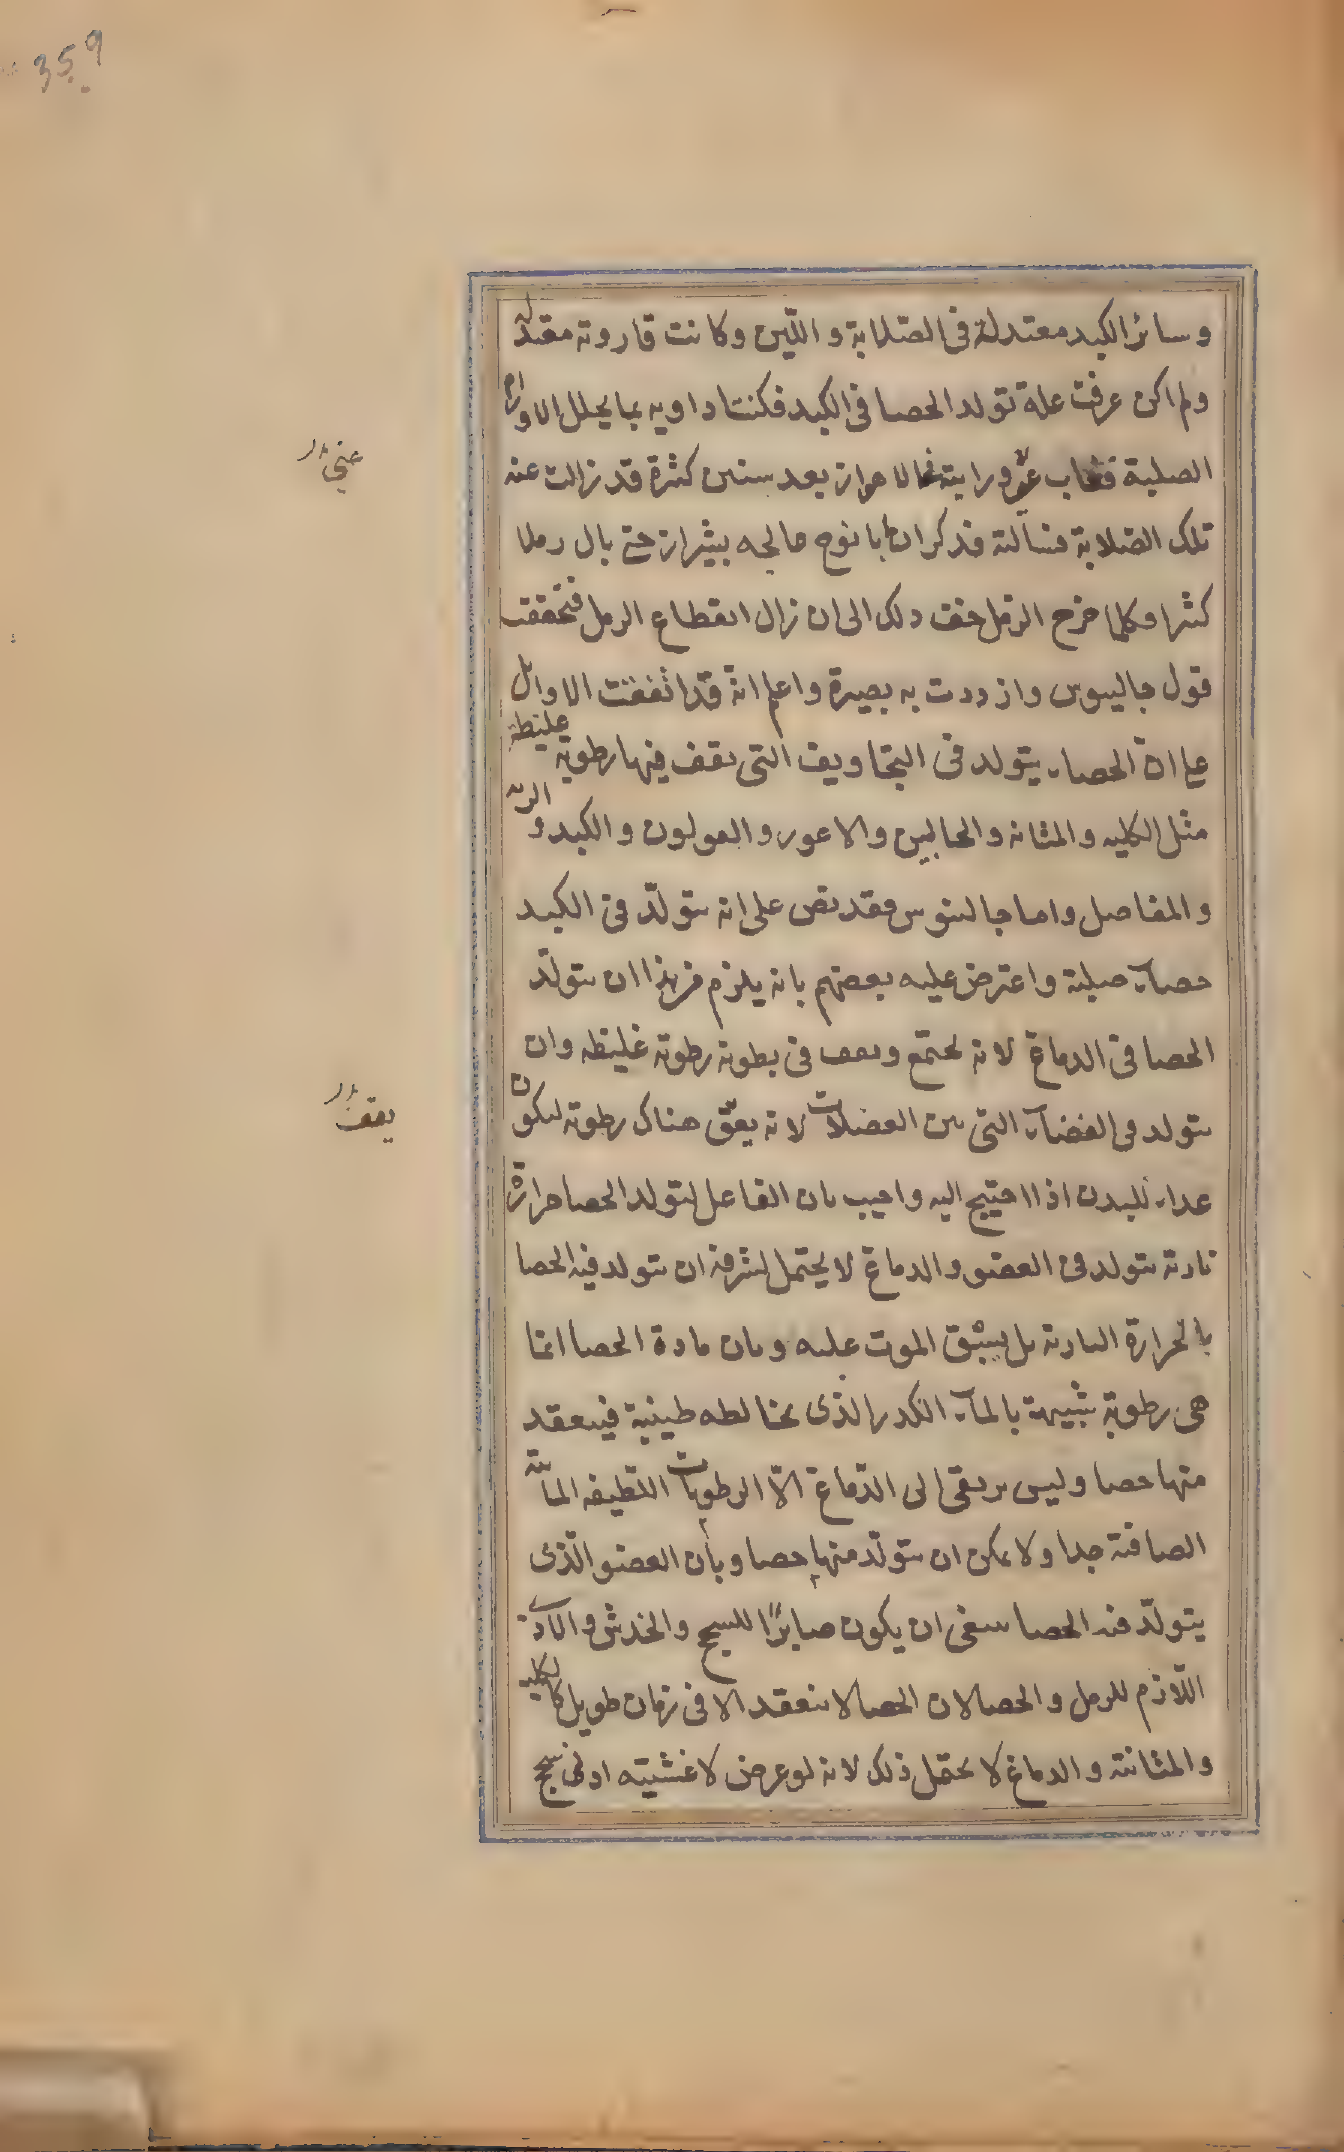 359
وسائر الكبد معتدلة فى الصّلابة و اللّين وكانت قارورته معتدلة
ولم اكن عرفت علة تولد الحصا فى الكبد فكنت اداويه بما يحلل الاورام
الصلبة فغاب عنى ورايته فى الاهواز بعد سنين كثيرة قد زالت عنه
عنى
تلك الصّلابة فسالته فذكر ان عالجه بشيراز حتى بال رملا
كثيرا وكلما خرج الرمل خف ذلك الى ان زال انقطاع الرمل فتحققت
قول جالينوس وازددت به بصيرة واعلم انّه قد اتفقت الاوايل
على انّ الحصاء يتولد فى التجاويف التى يقف فيها رطوبة غليظة
مثل الكليه والمثانه والحالبين والاعور والقولون والكبد و الريه
والمفاصل واما جالينوس فقد نص على انه يتولّد فى الكبد
حصاء صلبة واعترض عليه بعضهم بانه يلزم من هذا ان يتولّد
الحصا فى الدماغ لانه يجتمع ويقف فى بطونه رطوبة غليظه وان
يتولد فى الفضاء التى بين العضلات لانه يقف هناك رطوبة ليكون
يقف
غذاء للبدن اذا احتيج اليه واجيب بان الفاعل لتولد الحصا حرارة
نارية يتولد فى العضو والدماغ لا يحتمل لشرفه ان يتولد فيه الحصا
بالحرارة النارية بل يسبق الموت عليه وبان مادة الحصا انما
هى رطوبة شبيهة بالماء الكدر الذى يخالطه طينية فينعقد
منها حصا وليس يرتقى الى الدّماغ الّا الرطوبات اللّطيفه المائية
الصافية جدا ولا يمكن ان يتولّد منها حصا وبان العضو الّذى
يتولّد فيه الحصا ينبغى ان يكون صابرًا للسحج والخدش والاذى
اللّازم للرمل والحصا لان الحصا لا ينعقد الا فى زمان طويل كالكلية
والمثانة والدماغ لا يحتمل ذلك لانه لو عرض لاغشيته ادنى سحج